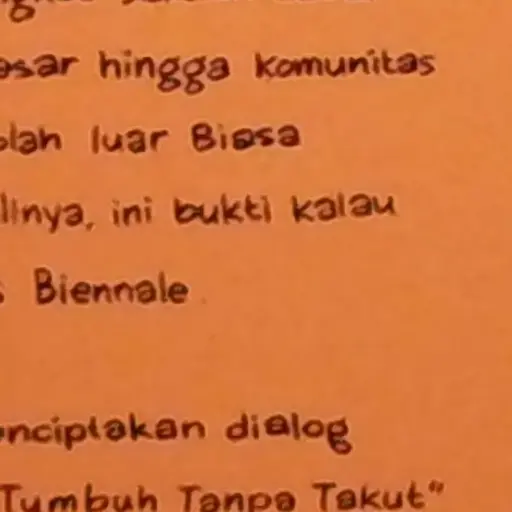 asar hingga komunitas
olah luar Biasa
llnya, ini bukti kalau
s Biennale
enciptakan dialog
Tumbuh Tanpa Takut"